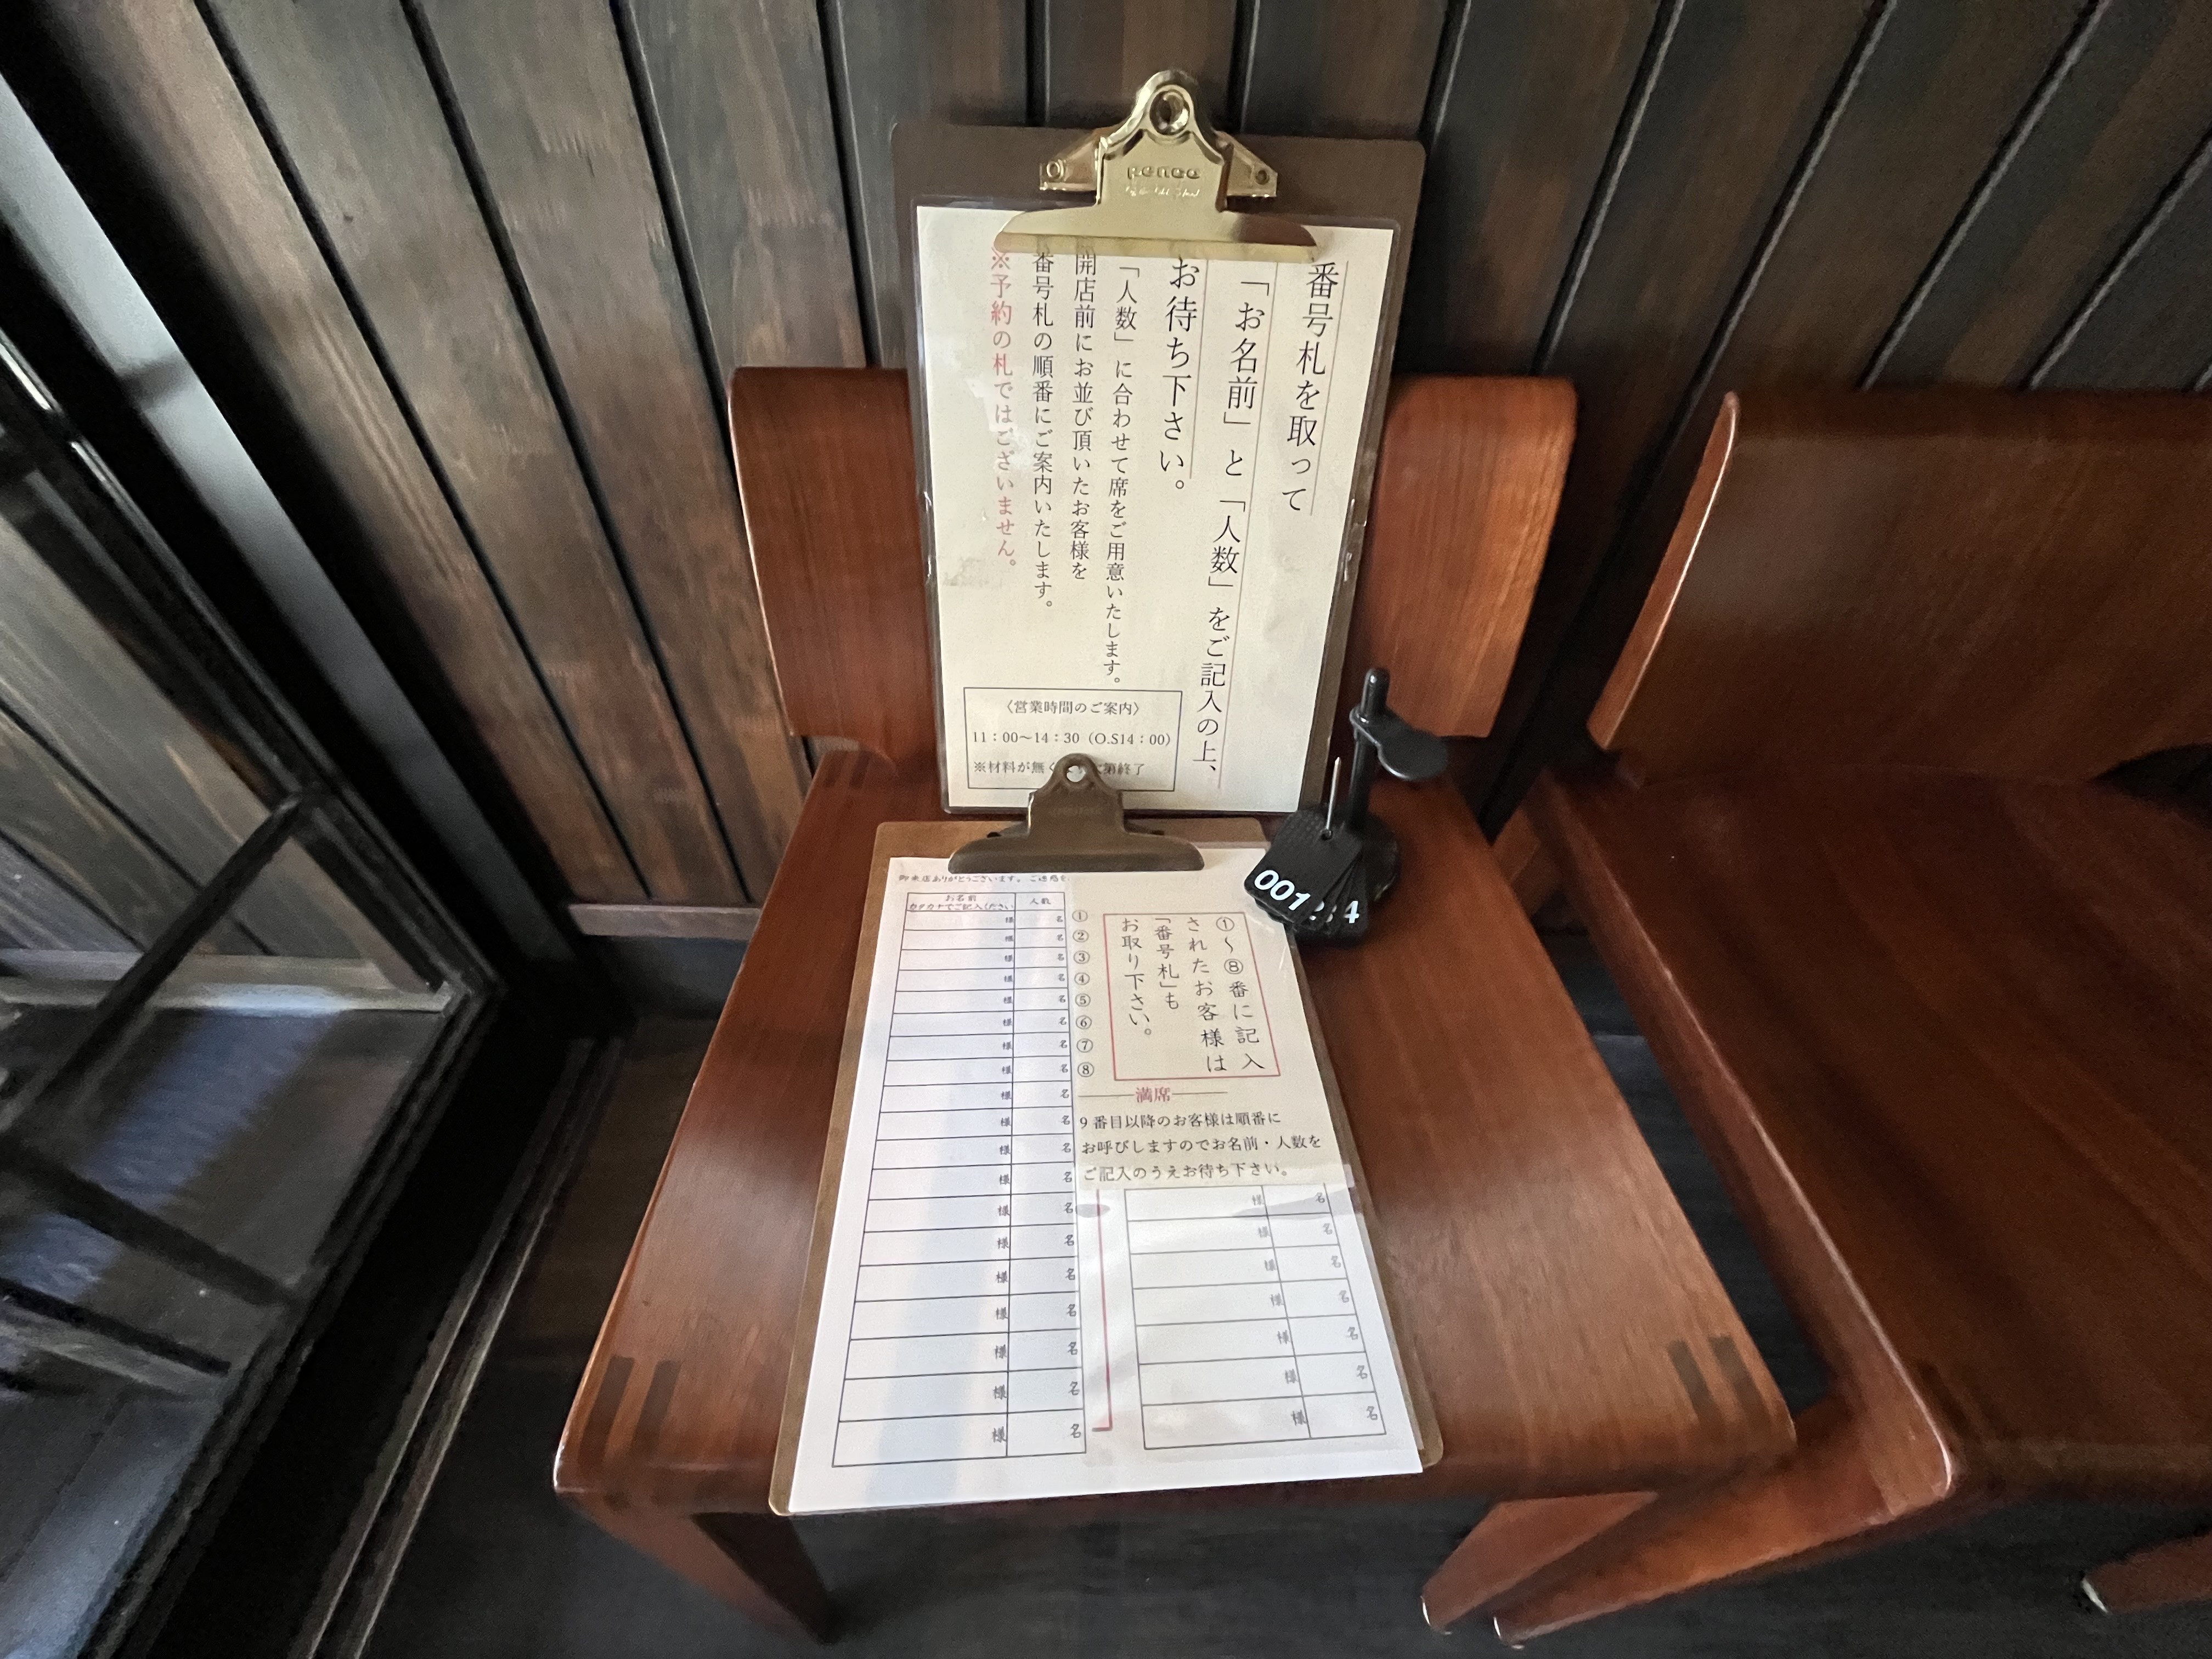 penco
番号札を取って
「お名前」と「人数」をご記入の上、
お待ち下さい。
「人数」に合わせて席をご用意いたします。
開店前にお並び頂いたお客様を
番号札の順番にご案内いたします。
※予約の札ではございません。
〈営業時間のご案内〉
11：00〜14：30（O.S14：00）
※材料が無く 次第終了
001
4
御来店ありがとうございます。ご迷惑を
お名前
カタカナでご記入ください
人数
様 名 ①
様 名 ②
様 名 ③
様 名 ④
様 名 ⑤
様 名 ⑥
様 名 ⑦
様 名 ⑧
様 名
様 名
様 名
様 名
様 名
様 名
様 名
様 名
様 名
様 名
様 名
①〜⑧番に記入
されたお客様は
「番号札」も
お取り下さい。
満席
9番目以降のお客様は順番に
お呼びしますのでお名前・人数を
ご記入のうえお待ち下さい。
様 名
様 名
様 名
様 名
様 名
様 名
様 名